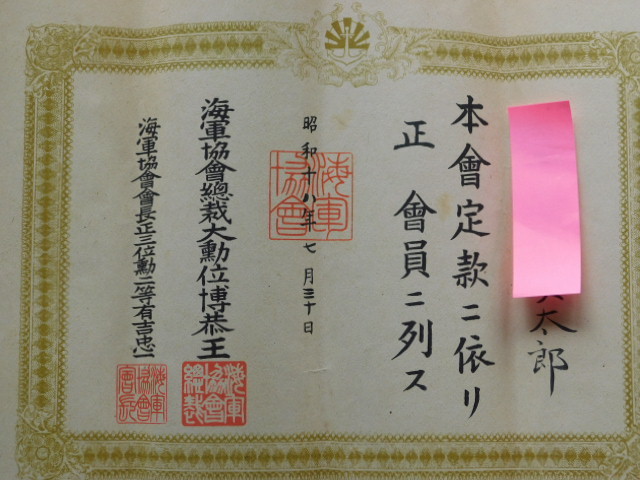 太郎
本會定款ニ依リ
正會員ニ列ス
昭和十八年七月三十日
海軍協會
海軍協會總裁大勲位博恭王
海軍協會總裁
海軍協會會長正三位勲二等有吉忠一
海軍協會會長